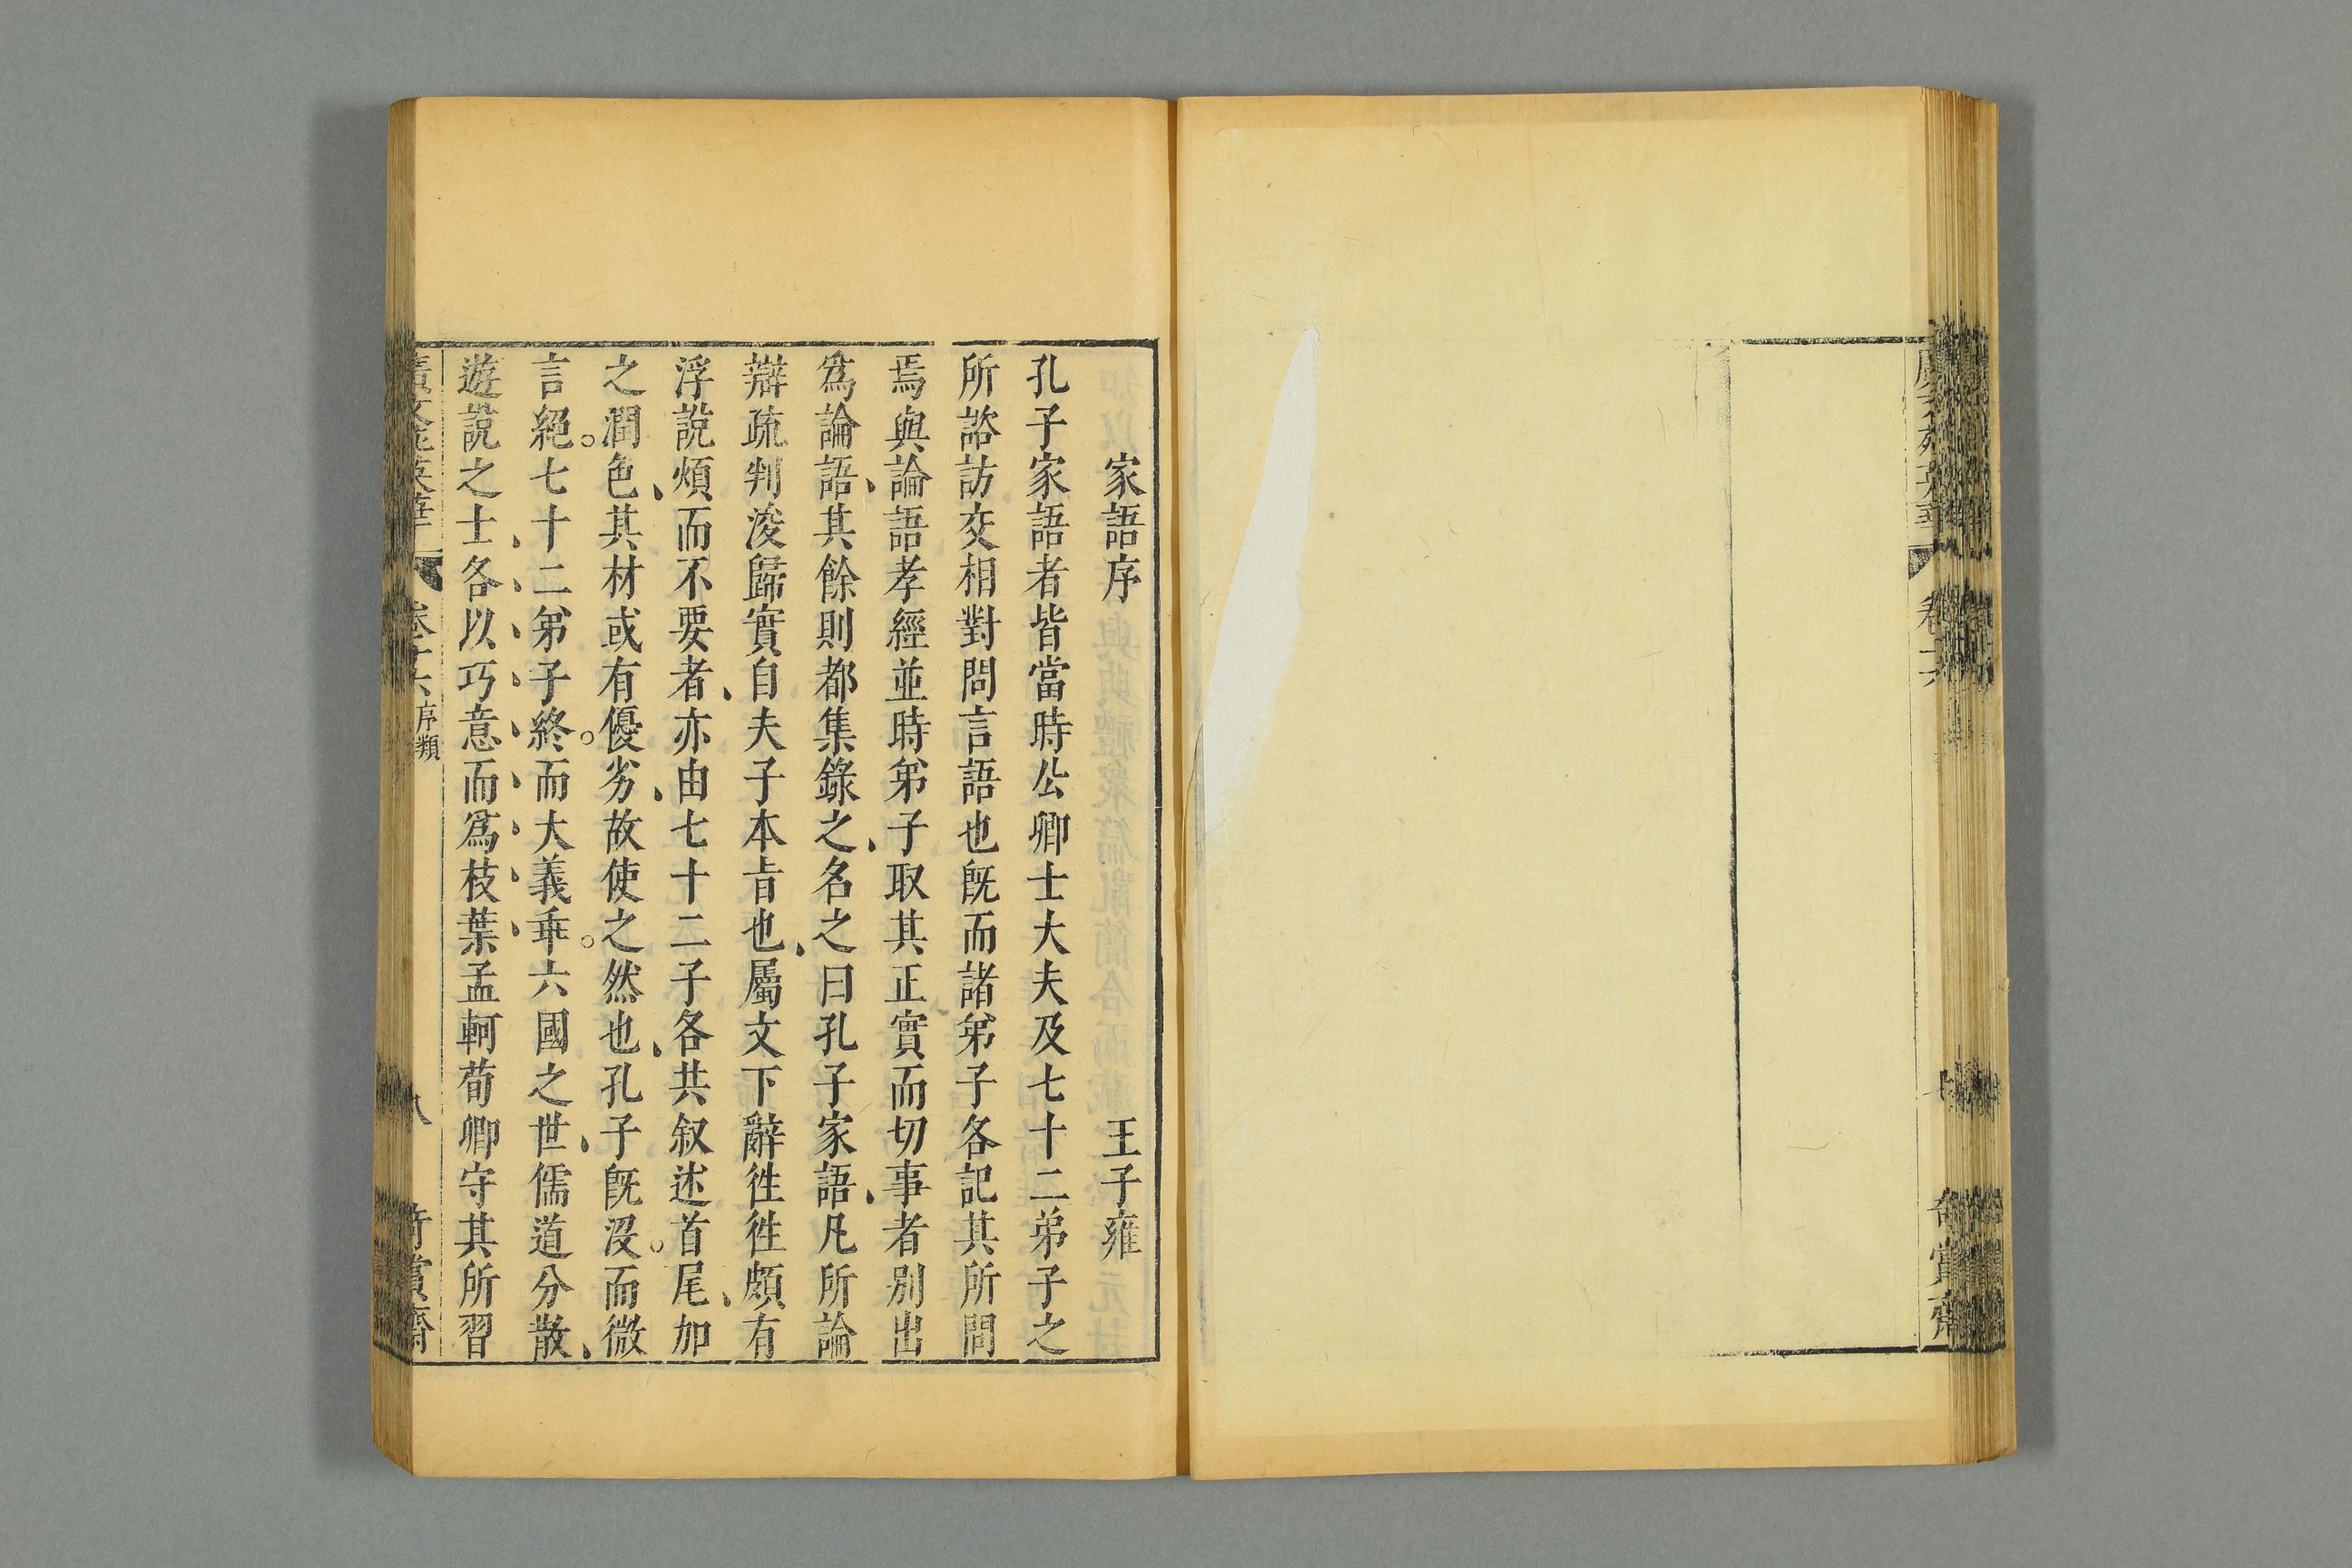 家語序 王子雍
孔子家語者皆當時公卿士大夫及七十二弟子之
所諮訪交相對問言語也既而諸弟子各記其所問
焉與論語孝經並時弟子取其正實而切事者別出
爲論語、其餘則都集錄之、名之曰孔子家語、凡所論
辯疏判浚歸實自夫子本旨也、屬文下辭徃徃頗有
浮說煩而不要者、亦由七十二子各共叙述首尾、加
之潤色、其材或有優劣、故使之然也、孔子既沒。而微
言絕。七十二弟子終。而大義乖。六國之世、儒道分散、
遊說之士各以巧意而爲枝葉孟軻荀卿守其所習
廣文苑英華 卷十六 序類 八 奇賞齋